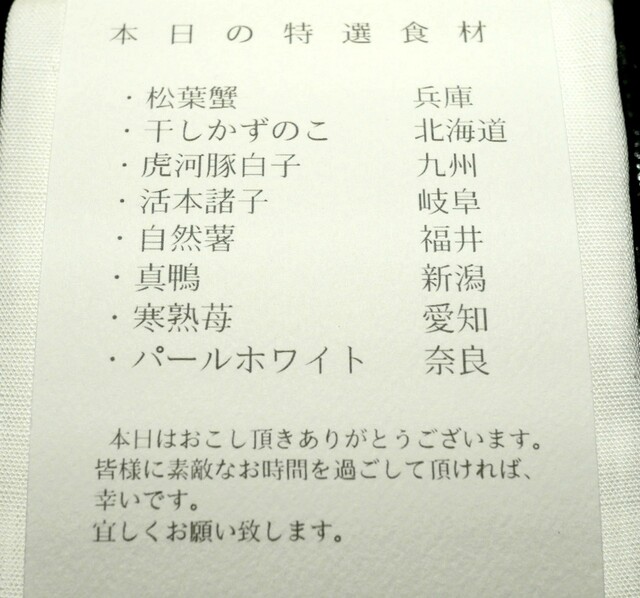 本日の特選食材
・松葉蟹 兵庫
・干しかずのこ 北海道
・虎河豚白子 九州
・活本諸子 岐阜
・自然薯 福井
・真鴨 新潟
・寒熟苺 愛知
・パールホワイト 奈良
本日はおこし頂きありがとうございます。
皆様に素敵なお時間を過ごして頂ければ、
幸いです。
宜しくお願い致します。